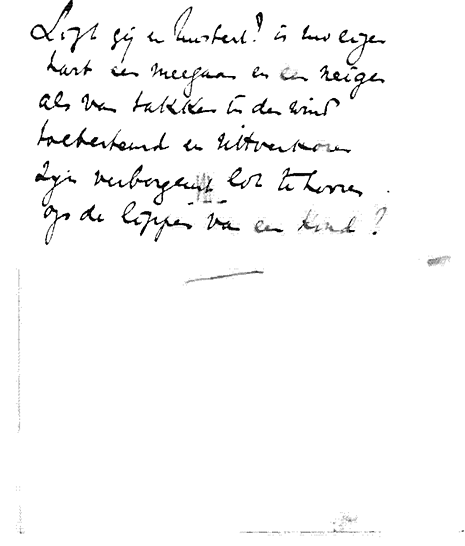 Ligt gij en luistert? is uw eigen
hart een meegaan en een neigen
als van takken in den wind
toebestemd en uitverkoren
zijn verborgenst lot te hooren
op de lippen van een kind?